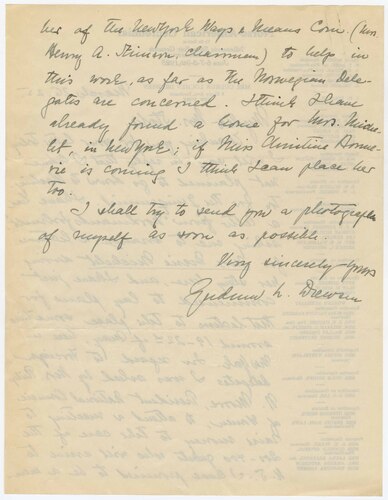 ber of the New York Ways & Means Com. (Mrs
Henry A. Stimson, chairman) to help in
this work, as far as the Norwegian Dele-
gates are concerned. I think I have
already found a home for Mrs. Mich-
let, in New York; if Miss Christine Bonne-
vie is coming I think I can place her
too.
I shall try to send you a photograph
of myself as soon as possible.
Very sincerely yours
Gudrun L. Drewsen